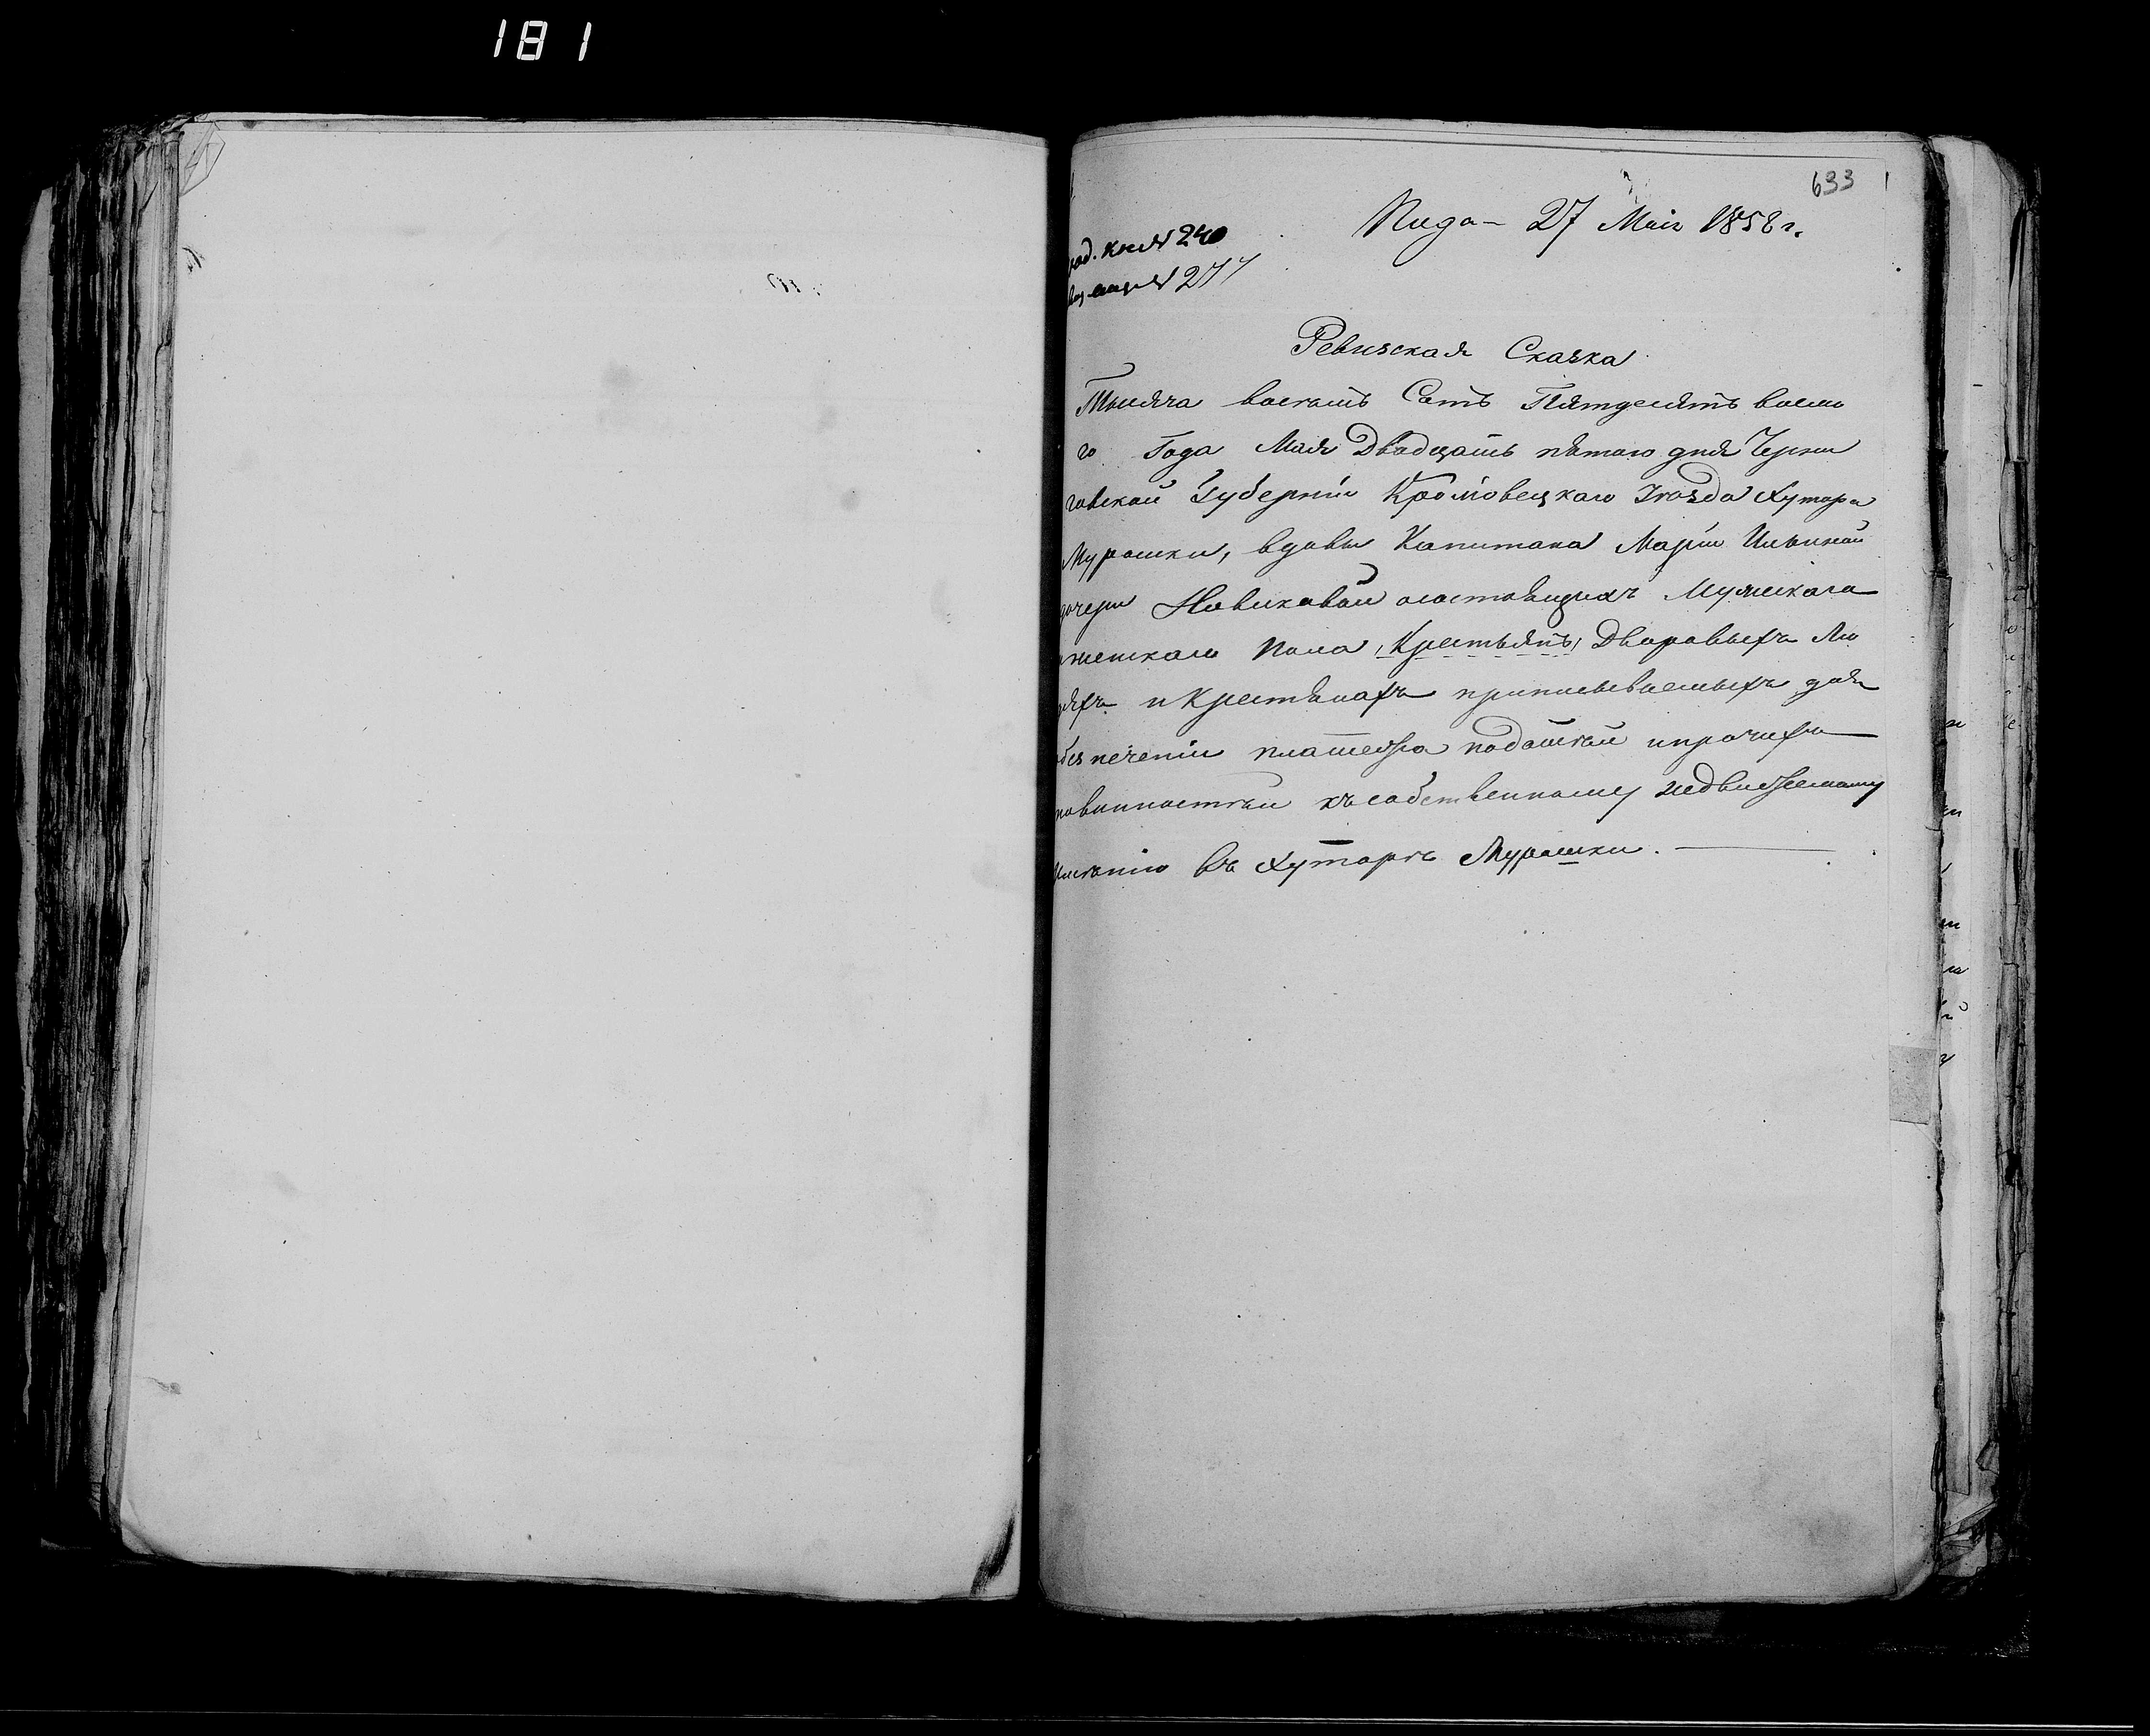 181
633
Пода– 27 Мая 1858 г.
№ 240
№ 277
Ревизская Сказка
Тысяча восемь Сотъ Пятдесятъ восмо
го Года Мая Двадцать пятаго дня Черни
говской Губерніи Кролѣвецкаго Уѣзда Хутора
Мурашки, вдовы Капитана Маріи Ильиной
дочери Новиковой о состоящихъ Мужескаго
женскаго пола Крестьянъ Дворовыхъ Лю
дяхъ и Крестьянахъ приписываемыхъ для
обезпеченія платежа податей и прочихъ
повинностей къ собственному недвижемому
имѣнію въ Хуторѣ Мурашки.